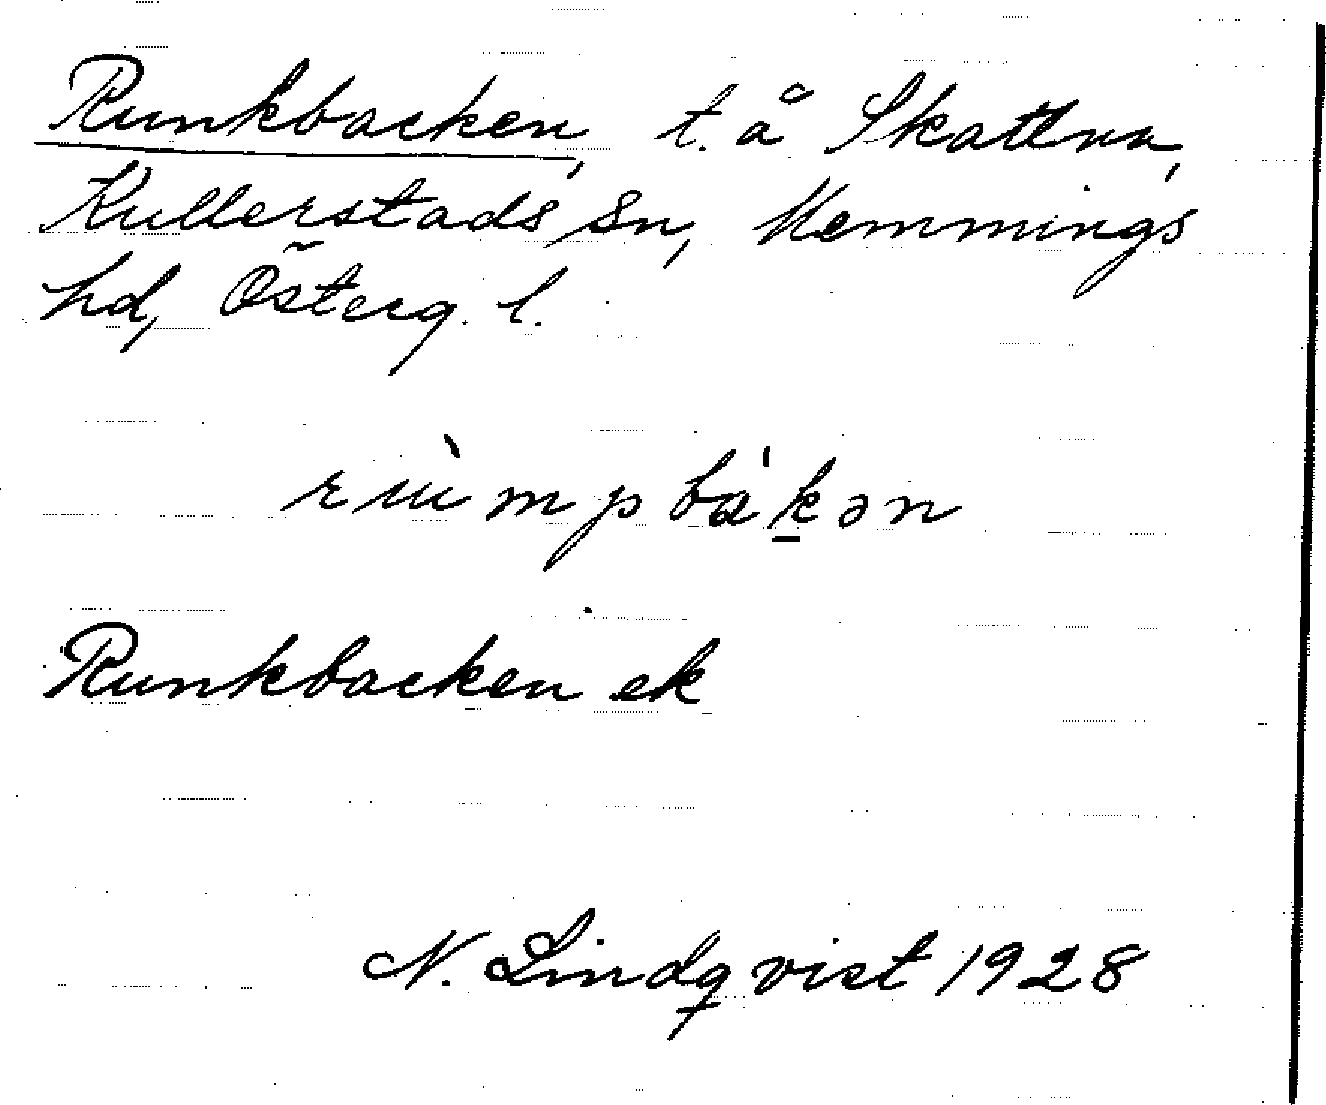 Runkbacken, t. å Skattna,
Kullerstads sn, Memmings
hd, Österg. l.
rùmpbák̲ən
Runkbacken ek
N. Lindqvist 1928